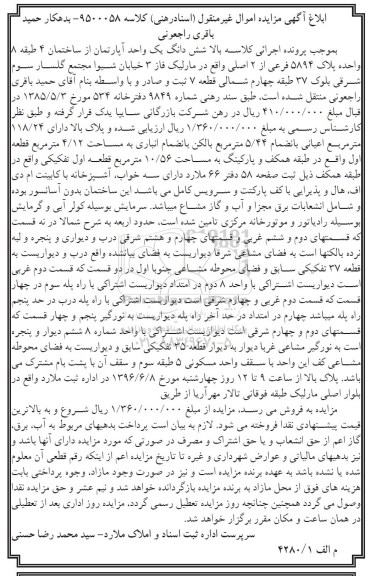 ابلاغ آگهی مزایده اموال غیرمنقول (اسنادرهنی) کلاسه ۹۵۰۰۰۵۸- بدهکار حمید
باقری راجعونی
بموجب پرونده اجرائی کلاسه بالا شش دانگ یک واحد آپارتمان از ساختمان ۴ طبقه ۸
واحده پلاک ۵۸۹۴ فرعی از ۲ اصلی واقع در مارلیک فاز ۳ خیابان شیوا مجتمع گلسار سوم
شرقی بلوک ۳۷ طبقه چهارم شمالی قطعه ۷ ثبت و صادر و با واسطه بنام آقای حمید باقری
راجعونی منتقل شده است، طبق سند رهنی شماره ۹۸۴۹ دفترخانه ۵۳۴ مورخ ۱۳۸۵/۵/۳ در
قبال مبلغ ۴۱۰/۰۰۰/۰۰۰ ریال در رهن شرکت بازرگانی سایپا یدک قرار گرفته و طبق نظر
کارشناس رسمی به مبلغ ۱/۳۶۰/۰۰۰/۰۰۰ ریال ارزیابی شده و پلاک بالا دارای ۱۱۸/۲۴
مترمربع اعیانی بانضمام ۵/۴۴ مترمربع بالکن بانضمام انباری به مساحت ۴/۱۲ مترمربع قطعه
اول واقع در طبقه همکف و پارکینگ به مساحت ۱۰/۵۶ مترمربع قطعه اول تفکیکی واقع در
طبقه همکف ذیل ثبت صفحه ۵۸ دفتر ۶۶ ملارد دارای سه خواب، آشپزخانه با کابینت ام دی
اف، هال و پذیرایی با کف پارکتت و سرویس کامل می باشد این ساختمان بدون آسانسور بوده
و شامل انشعابات برق مجزا و آب و گاز مشاع میباشد. سرمایش بوسیله کولر آبی و گرمایش
بوسیله رادیاتور و موتورخانه مرکزی تامین شده است، حدود اربعه به شرح شمالا در نه قسمت
که قسمتهای دوم و ششم غربی و قسمتهای چهارم و هشتم شرقی درب و دیواری و پنجره و لبه
نرده بالکنها است به فضای مشاعی شرقا دیواریست به فضای بیانشده واقع درب و دیواریست به
قطعه ۳۷ تفکیکی سابق و فضای محوطه مشاعی جنوبا اول در دو قسمت که قسمت دوم غربی
است دیواریست اشتراکی با واحد ۸ دوم در امتداد دیواریست اشتراکی با راه پله سوم در چهار
قسمت که قسمت دوم غربی و چهارم شرقی است دیواریست اشتراکی با راه پله درب در حد پنجم
راه پله میباشد چهارم در امتداد در حد آخر راه پله دیواریست به نورگیر پنجم و چهار قسمت که
قسمتهای دوم و چهارم شرقی است دیواریست اشتراکی با واحد شماره ۸ ششم دیوار و پنجره
است به نورگیر مشاعی غربا دیوار به دیوار قطعه ۳۵ تفکیکی سابق و دیواریست به فضای محوطه
مشاعی کف این واحد با سقف واحد مسکونی ۵ طبقه سوم و سقف آن با پشت بام مشترک می
باشد. پلاک بالا از ساعت ۹ تا ۱۲ روز چهارشنبه مورخ ۱۳۹۶/۶/۸ در اداره ثبت ملارد واقع در
بلوار اصلی مارلیک طبقه فوقانی تالار مهرآریا از طریق
مزایده به فروش می رسد. مزایده از مبلغ ۱/۳۶۰/۰۰۰/۰۰۰ ریال شروع و به بالاترین
قیمت پیشنهادی نقدا فروخته می شود. لازم به بیان است پرداخت بدهیهای مربوط به آب، برق،
گاز اعم از حق انشعاب و یا حق اشتراک و مصرف در صورتی که مورد مزایده دارای آنها باشد و
نیز بدهیهای مالیاتی و عوارض شهرداری و غیره تا تاریخ مزایده اعم از اینکه رقم قطعی آن معلوم
شده یا نشده باشد به عهده برنده مزایده است و نیز در صورت وجود مازاد، وجوه پرداختی بابت
هزینه های فوق از محل مازاد به برنده مزایده بازگردانده خواهد شد و نیم عشر و حق مزایده نقدا
وصول می گردد همچنین چنانچه روز مزایده تعطیل رسمی گردد، مزایده روز اداری بعد از تعطیلی
در همان ساعت و مکان مقرر برگزار خواهد شد.
سرپرست اداره ثبت اسناد و املاک ملارد- سید محمد رضا حسنی
م الف ۴۲۸۰/۱